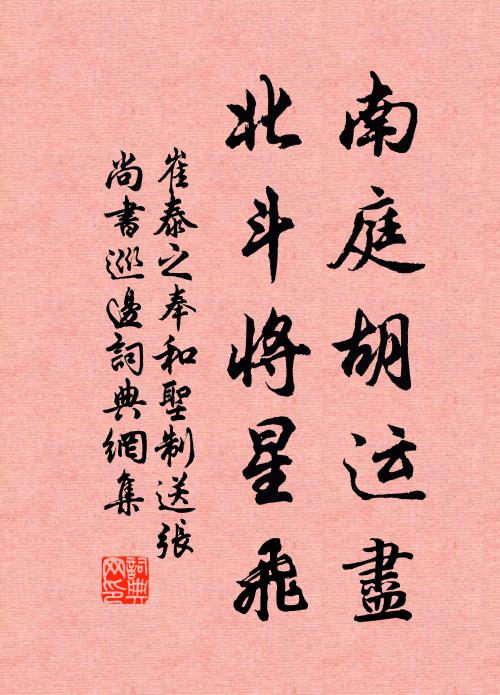 南庭胡运盡
北斗將星飛
崔泰之奉和聖制送張
尚書巡邊詞典網集
詞典
网印